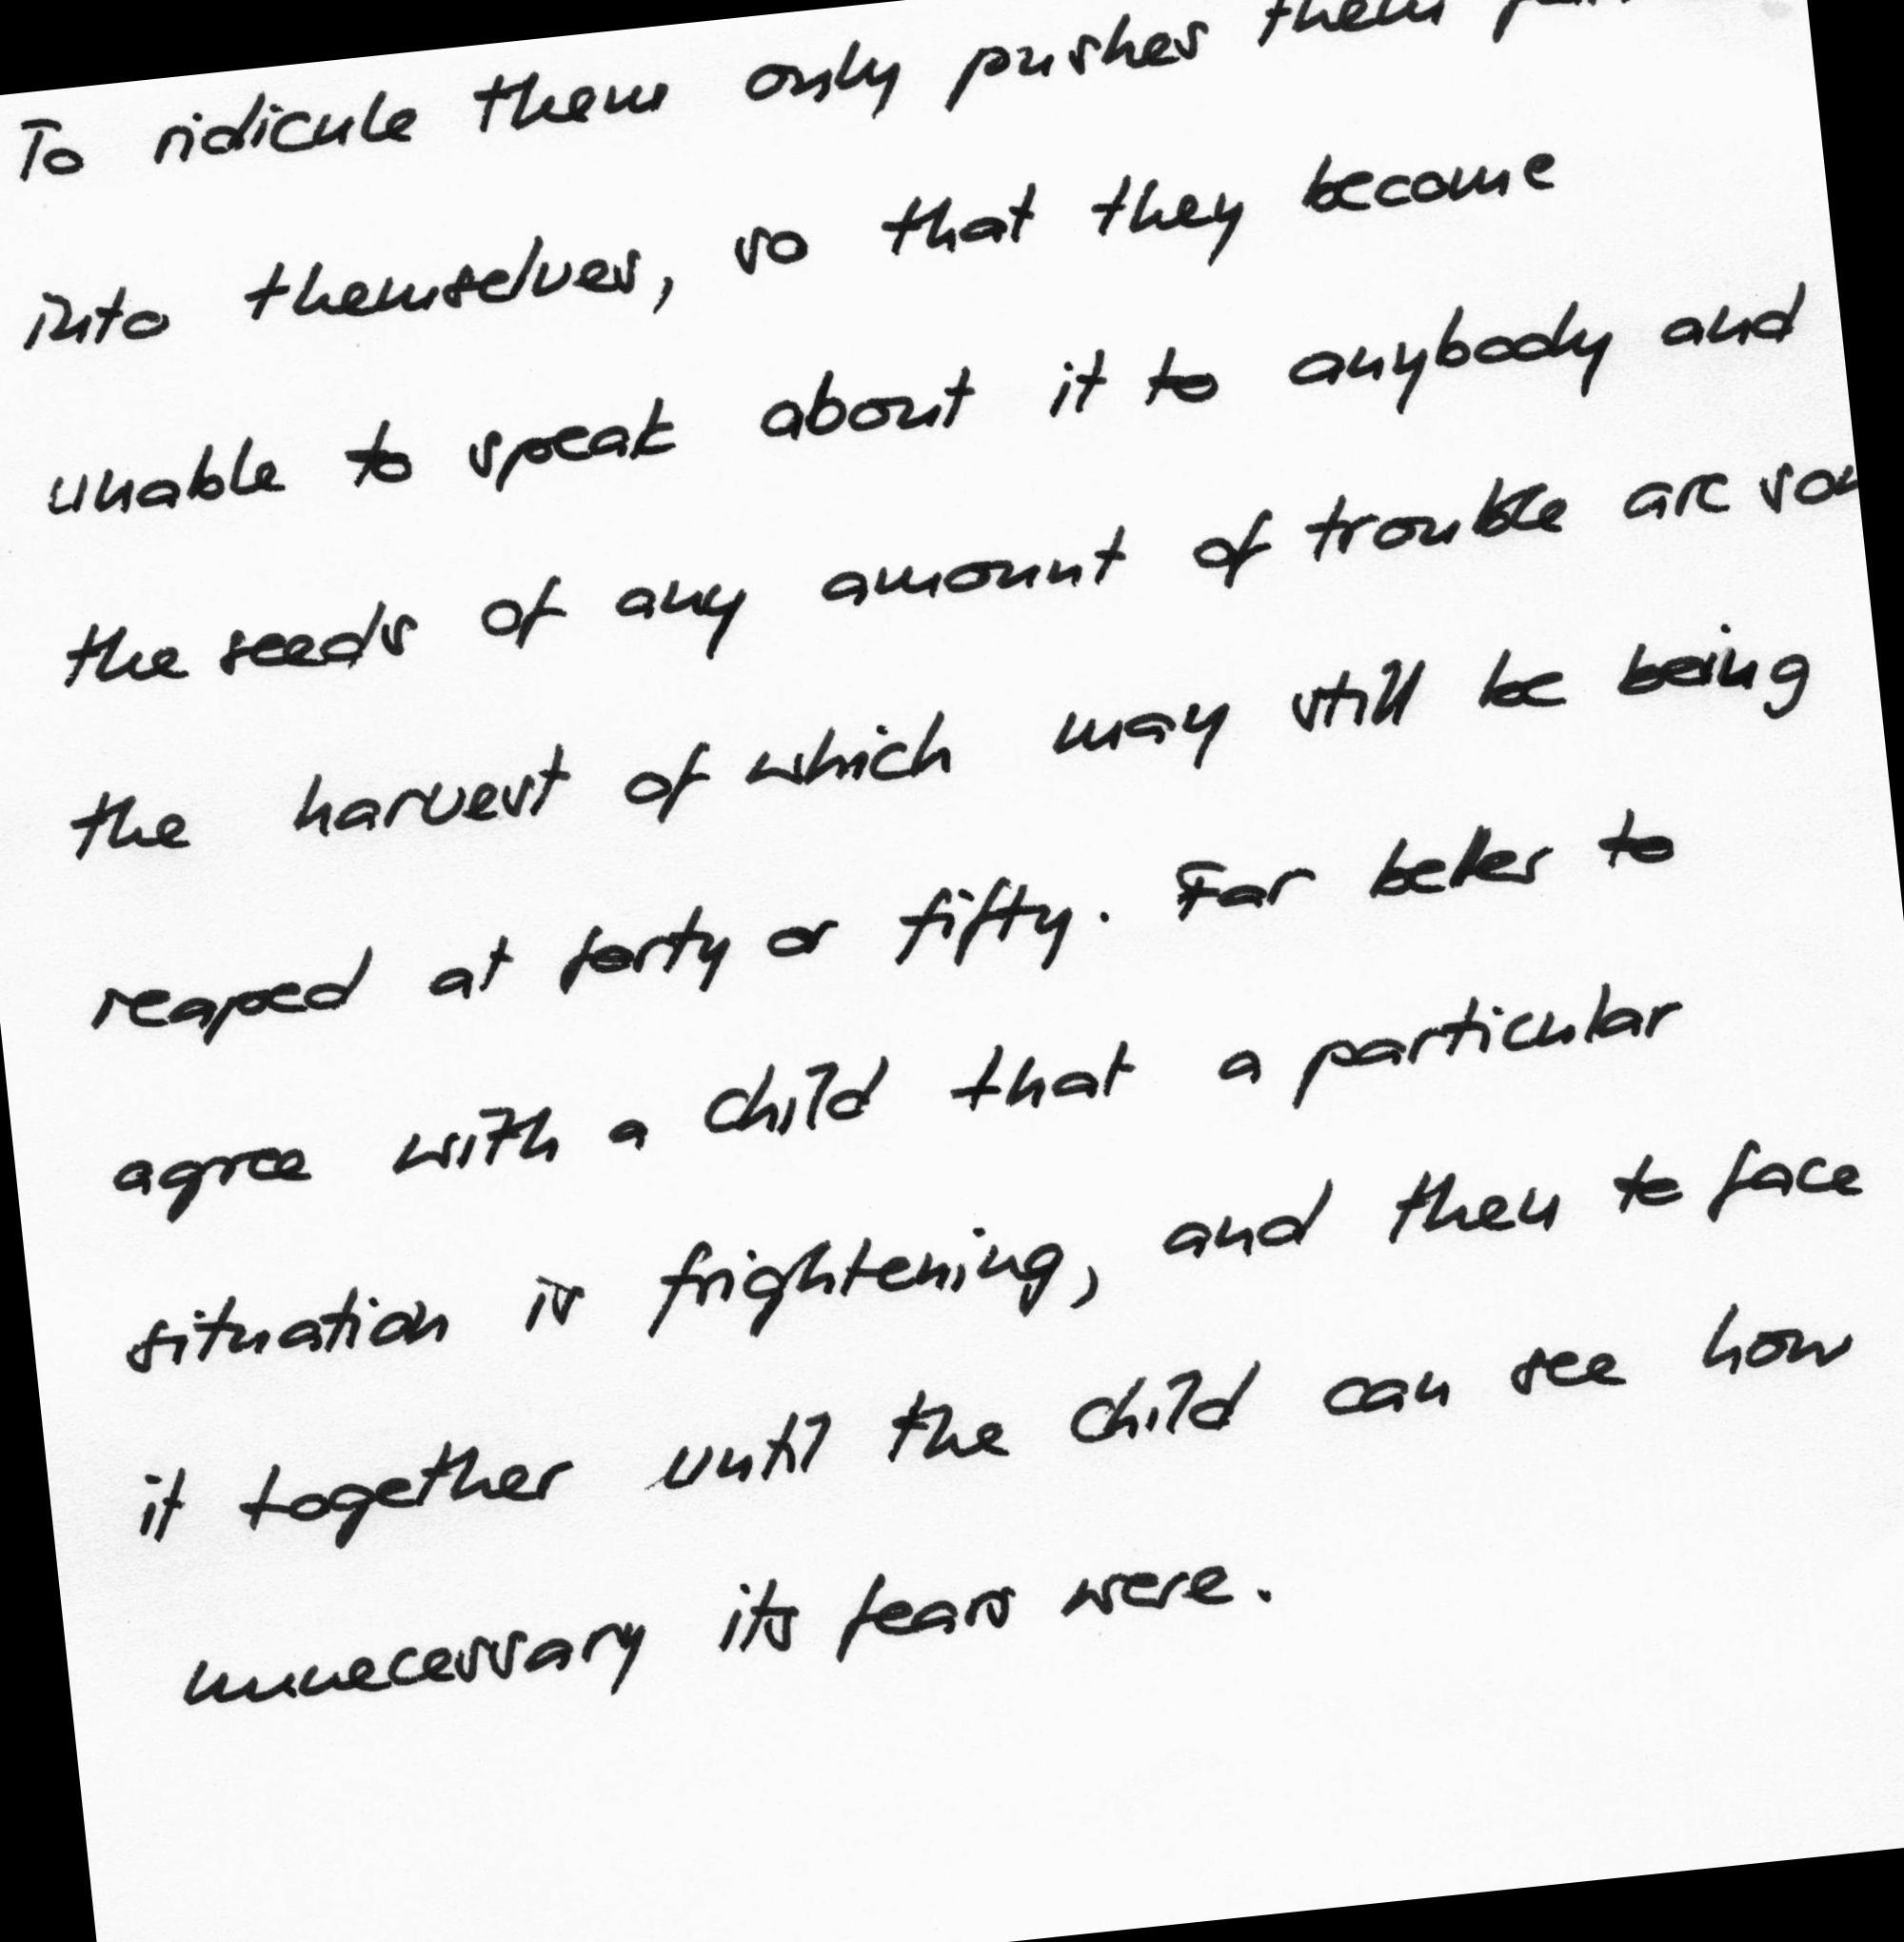 To ridicule them only pushes them
into themselves, so that they become
unable to speak about it to anybody and
the seeds of any amount of trouble are
the harvest of which may still be being
reaped at forty or fifty. Far better to
agree with a child that a particular
situation is frightening, and then to face
it together until the child can see how
unnecessary its fears were.